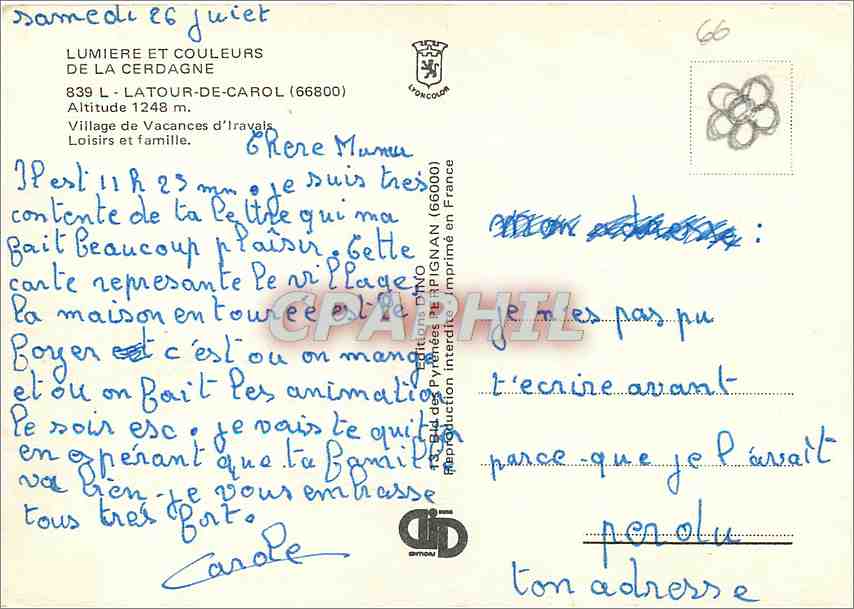 samedi 26 juiet
66
LUMIERE ET COULEURS
DE LA CERDAGNE
839 L - LATOUR-DE-CAROL (66800)
Altitude 1248 m.
Village de Vacances d'Iravais
Loisirs et famille.
LYONCOLOR
Chere
Il est 11 h 25 mn. je suis très
contente de ta lettre qui ma
fait beaucoup plaisir. Cette
carte represante le village
la maison entourée est le
foyer c'est ou on mange
et ou on fait les animation
le soir esc. je vais te quitter
en espérant que ta famille
va bien. je vous embrasse
tous très fort.
Carole
Editions DINO
13, Bld des Pyrénées PERPIGNAN (66000)
Reproduction interdite - Imprimé en France
CPAPHIL
DINO
EDITIONS
:
je n'es pas pu
t'ecrire avant
parce-que je l'avait
perdu
ton adresse